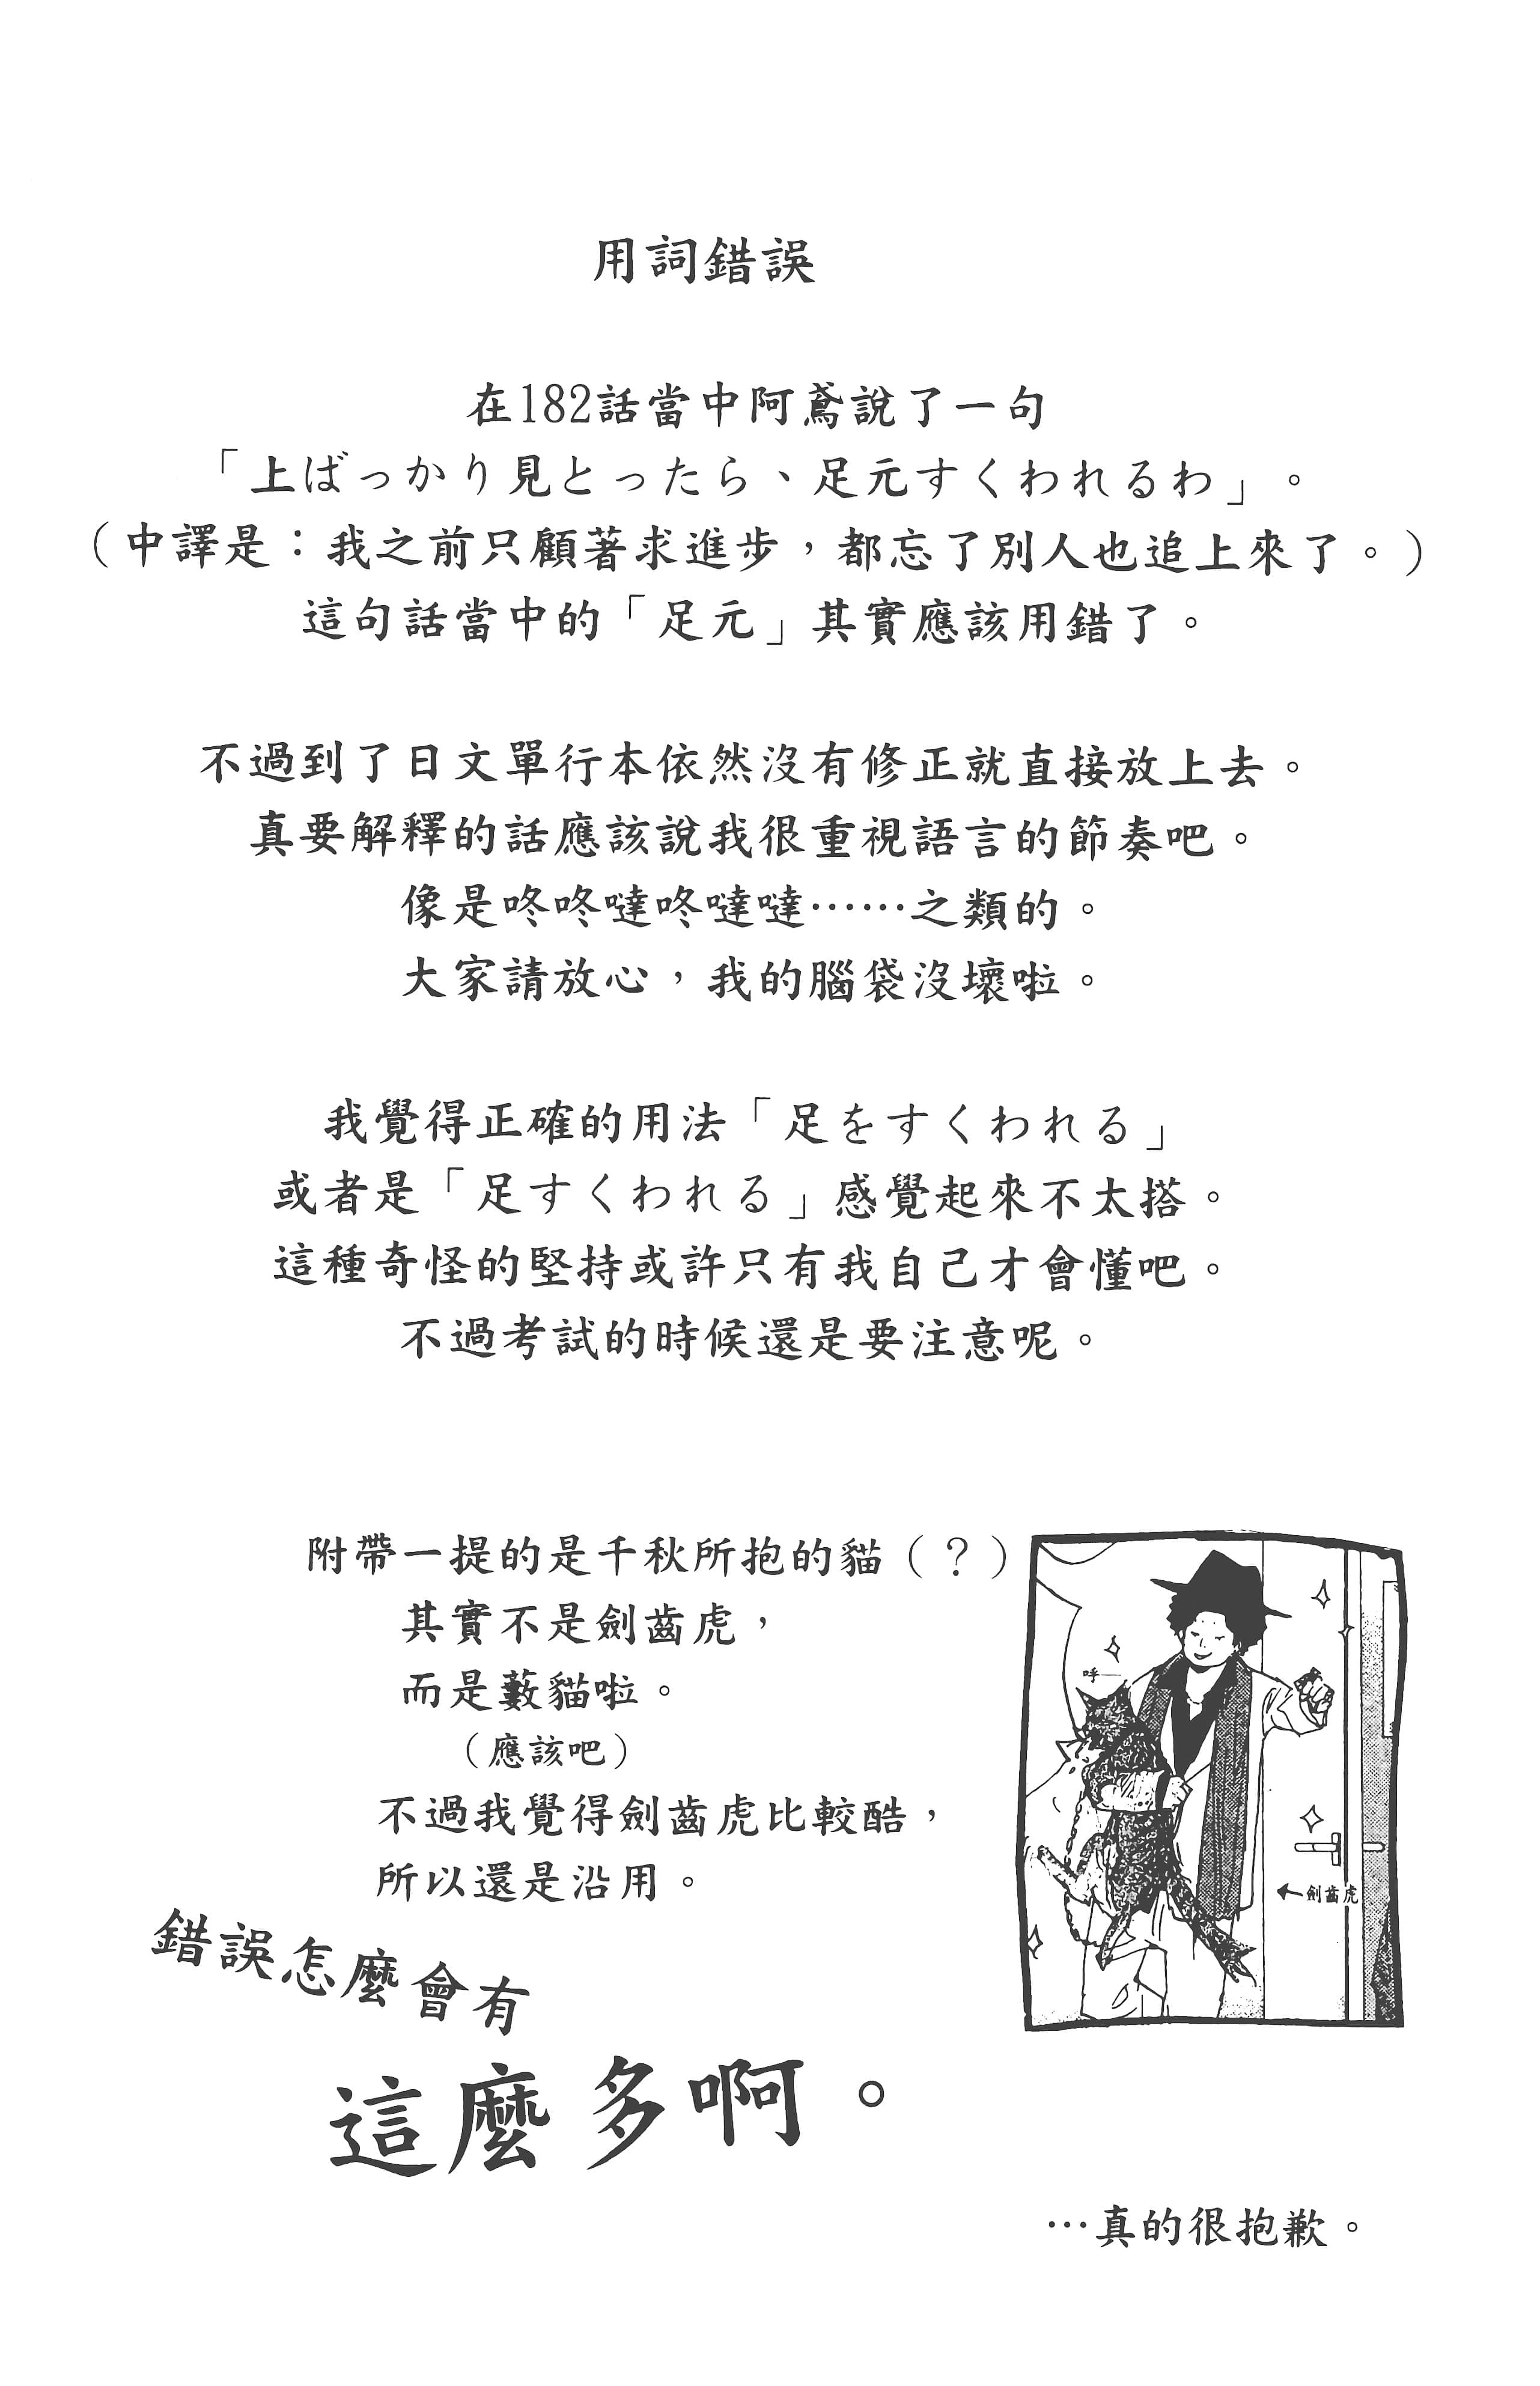 用詞錯誤
在182話當中阿鳶說了一句
「上ばっかり見とったら、足元すくわれるわ」。
（中譯是：我之前只顧著求進步，都忘了別人也追上來了。）
這句話當中的「足元」其實應該用錯了。
不過到了日文單行本依然沒有修正就直接放上去。
真要解釋的話應該說我很重視語言的節奏吧。
像是咚咚噠咚噠噠……之類的。
大家請放心，我的腦袋沒壞啦。
我覺得正確的用法「足をすくわれる」
或者是「足すくわれる」感覺起來不太搭。
這種奇怪的堅持或許只有我自己才會懂吧。
不過考試的時候還是要注意呢。
附帶一提的是千秋所抱的貓（？）
其實不是劍齒虎，
而是藪貓啦。
（應該吧）
不過我覺得劍齒虎比較酷，
所以還是沿用。
呼——
←劍齒虎
錯誤怎麼會有
這麼多啊。
…真的很抱歉。